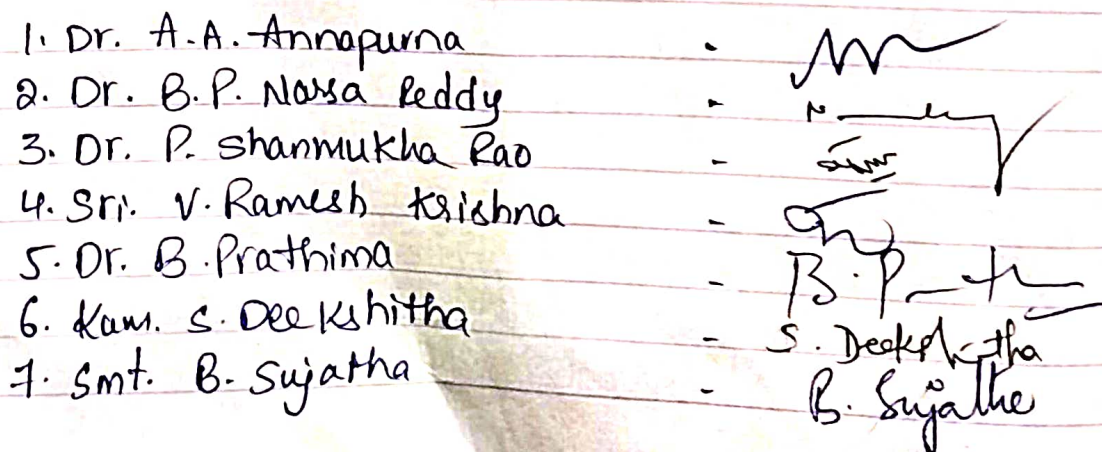 1. Dr. A.A. Annapurna -
2. Dr. B.P. Narsa Reddy -
3. Dr. P. Shanmukha Rao -
4. Sri. V. Ramesh Krishna -
5. Dr. B. Prathima - B. P
6. Kum. S. Deekshitha - S. Deekshitha
7. Smt. B. Sujatha - B. Sujatha